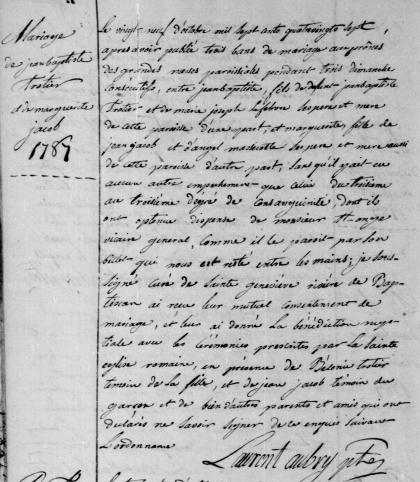 Mariage
de jean baptiste
trotier
et de marguerite
jacob
1787
Le vingt neuf d'octobre mil sept cents quatrevingts sept,
apres avoir publié trois bans de mariage aux prônes
des grandes messes paroissiales pendant trois dimanche
consecutifs, entre jean baptiste, fils de defunt jean baptiste
trotier et de marie joseph Lefebvre ses pere et mere
de cette paroisse d'une part, et marguerite, fille de
jean jacob et d'angel ses pere et mere aussi
de cette paroisse d'autre part, sans qu'il y ait eu
aucun autre empechement que celui du troisieme
au troisiéme dégré de consanguinité dont ils
ont obtenue dispense de monsieur St. onge
vicaire general, comme il le paroit par son
billet qui nous est resté entre les mains; je sous
signé curé de Sainte geneviéve riviere de Bap
tiscan ai recu leur mutuel consentement de
mariage, et leur ai donné la bénédiction nup
tiale avec les cérémonies prescrites par la Sainte
eglise romaine, en présence de trotier
temoin de la fille, et de jean jacob témoin du
garçon et de bien d'autres parents et amis qui ont
declarés ne savoir signer de ce enquis suivant
L'ordonnance
Laurent aubry ptre